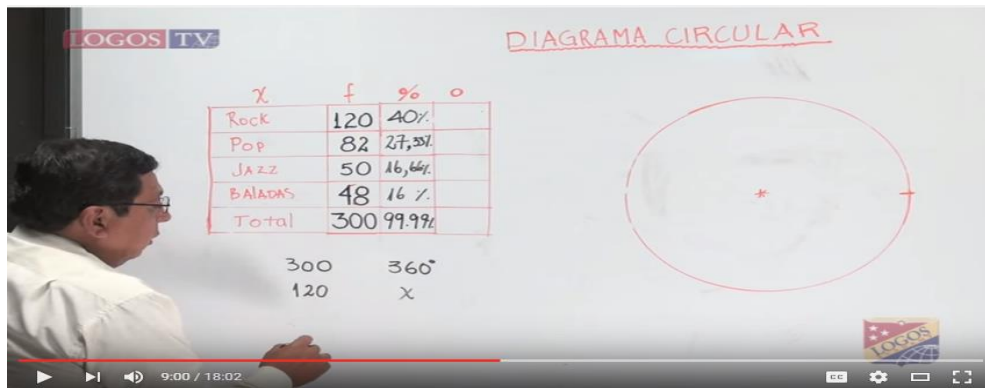 LOGOS TV
DIAGRAMA CIRCULAR
X f % o
ROCK 120 40%.
POP 82 27,33%.
JAZZ 50 16,66%.
BALADAS 48 16 %.
Total 300 99.9%
300 360°
120 X
LOGOS
9:00 / 18:02
CC